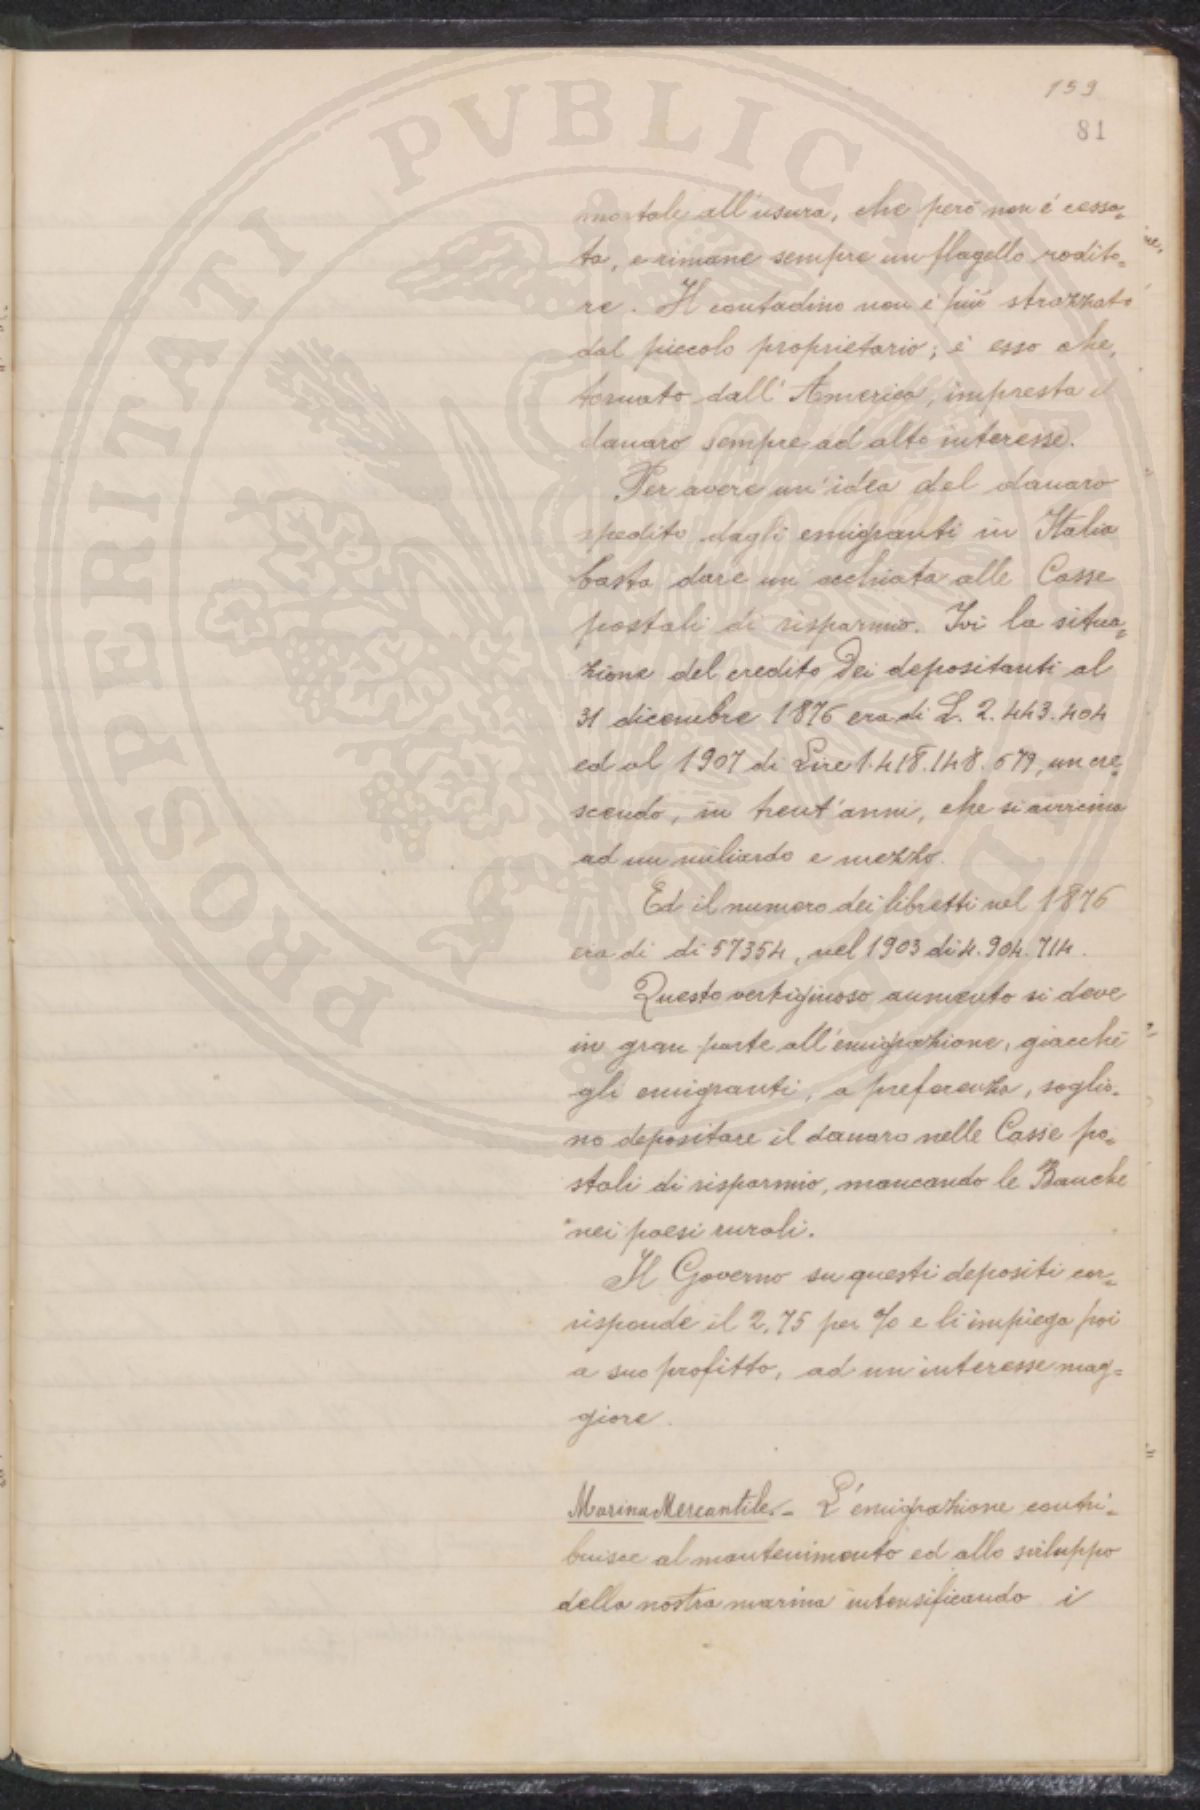 159
81
mortale all'usura, che però non è cessa=
ta, e rimane sempre un flagello rodito=
re. Il contadino non è più strozzato
dal piccolo proprietario; è esso che,
tornato dall'America, impresta il
danaro sempre ad alto interesse.
Per avere un'idea del danaro
spedito dagli emigranti in Italia
basta dare un'occhiata alle Casse
postali di risparmio. Ivi la situa=
zione del credito dei depositanti al
31 dicembre 1876 era di L. 2.443.404
ed al 1907 di Lire 1.418.148.679, un cre=
scendo, in trent'anni, che si avvicina
ad un miliardo e mezzo.
Ed il numero dei libretti nel 1876
era di di 57354, nel 1903 di 4.904.714.
Questo vertiginoso aumento si deve
in gran parte all'emigrazione, giacchè
gli emigranti, a preferenza, soglio=
no depositare il danaro nelle Casse po=
stali di risparmio, mancando le Banche
nei paesi rurali.
Il Governo su questi depositi cor=
risponde il 2,75 per % e li impiega poi
a suo profitto, ad un interesse mag=
giore.
Marina Mercantile. = L'emigrazione contri=
buisce al mantenimento ed allo sviluppo
della nostra marina intensificando i
PROSPERITATI PVBLICAE